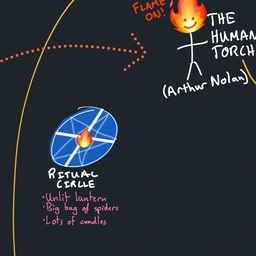 FLAME
ON!
THE
HUMAN
TORCH
(Arthur Nolan)
RITUAL
CIRCLE
·Unlit lantern
·Big bag of spiders
·Lots of candles